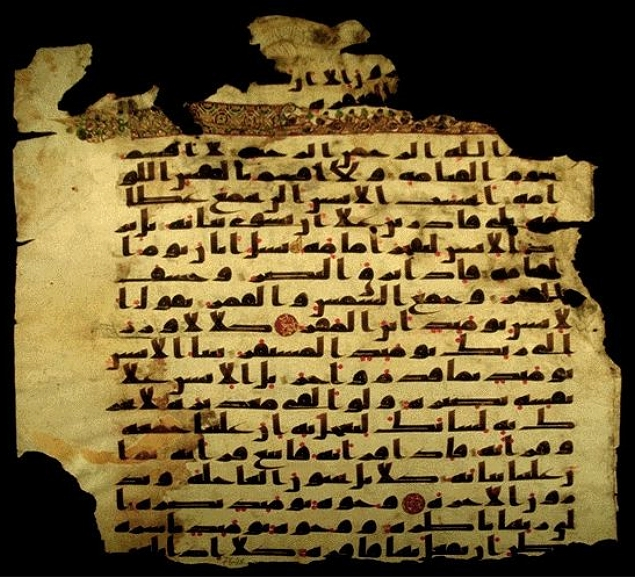 رون الا ان
الله الرحمن الرحيم لا اقسم
بيوم القيمة ولا اقسم بالنفس اللو
امة ايحسب الانسن الن نجمع عظا
مه بلى قادرين على ان نسوي بنانه بل ير
يد الانسن ليفجر امامه يسل ايان يوم ا
لقيمة فاذا برق البصر وخسف
القمر وجمع الشمس والقمر يقول ا
لانسن يومئذ اين المفر كلا لا وزر
الى ربك يومئذ المستقر ينبا الانسن
يومئذ بما قدم واخر بل الانسن على
نفسه بصيرة ولو القى معذيره لا تحر
ك به لسانك لتعجل به ان علينا جمعه
وقرانه فاذا قرانه فاتبع قرانه ثم ا
ن علينا بيانه كلا بل تحبون العاجلة وتذ
رون الاخرة وجوه يومئذ ناضرة ا
لى ربها ناظرة ووجوه يومئذ باسرة
تظن ان يفعل بها فاقرة كلا اذا